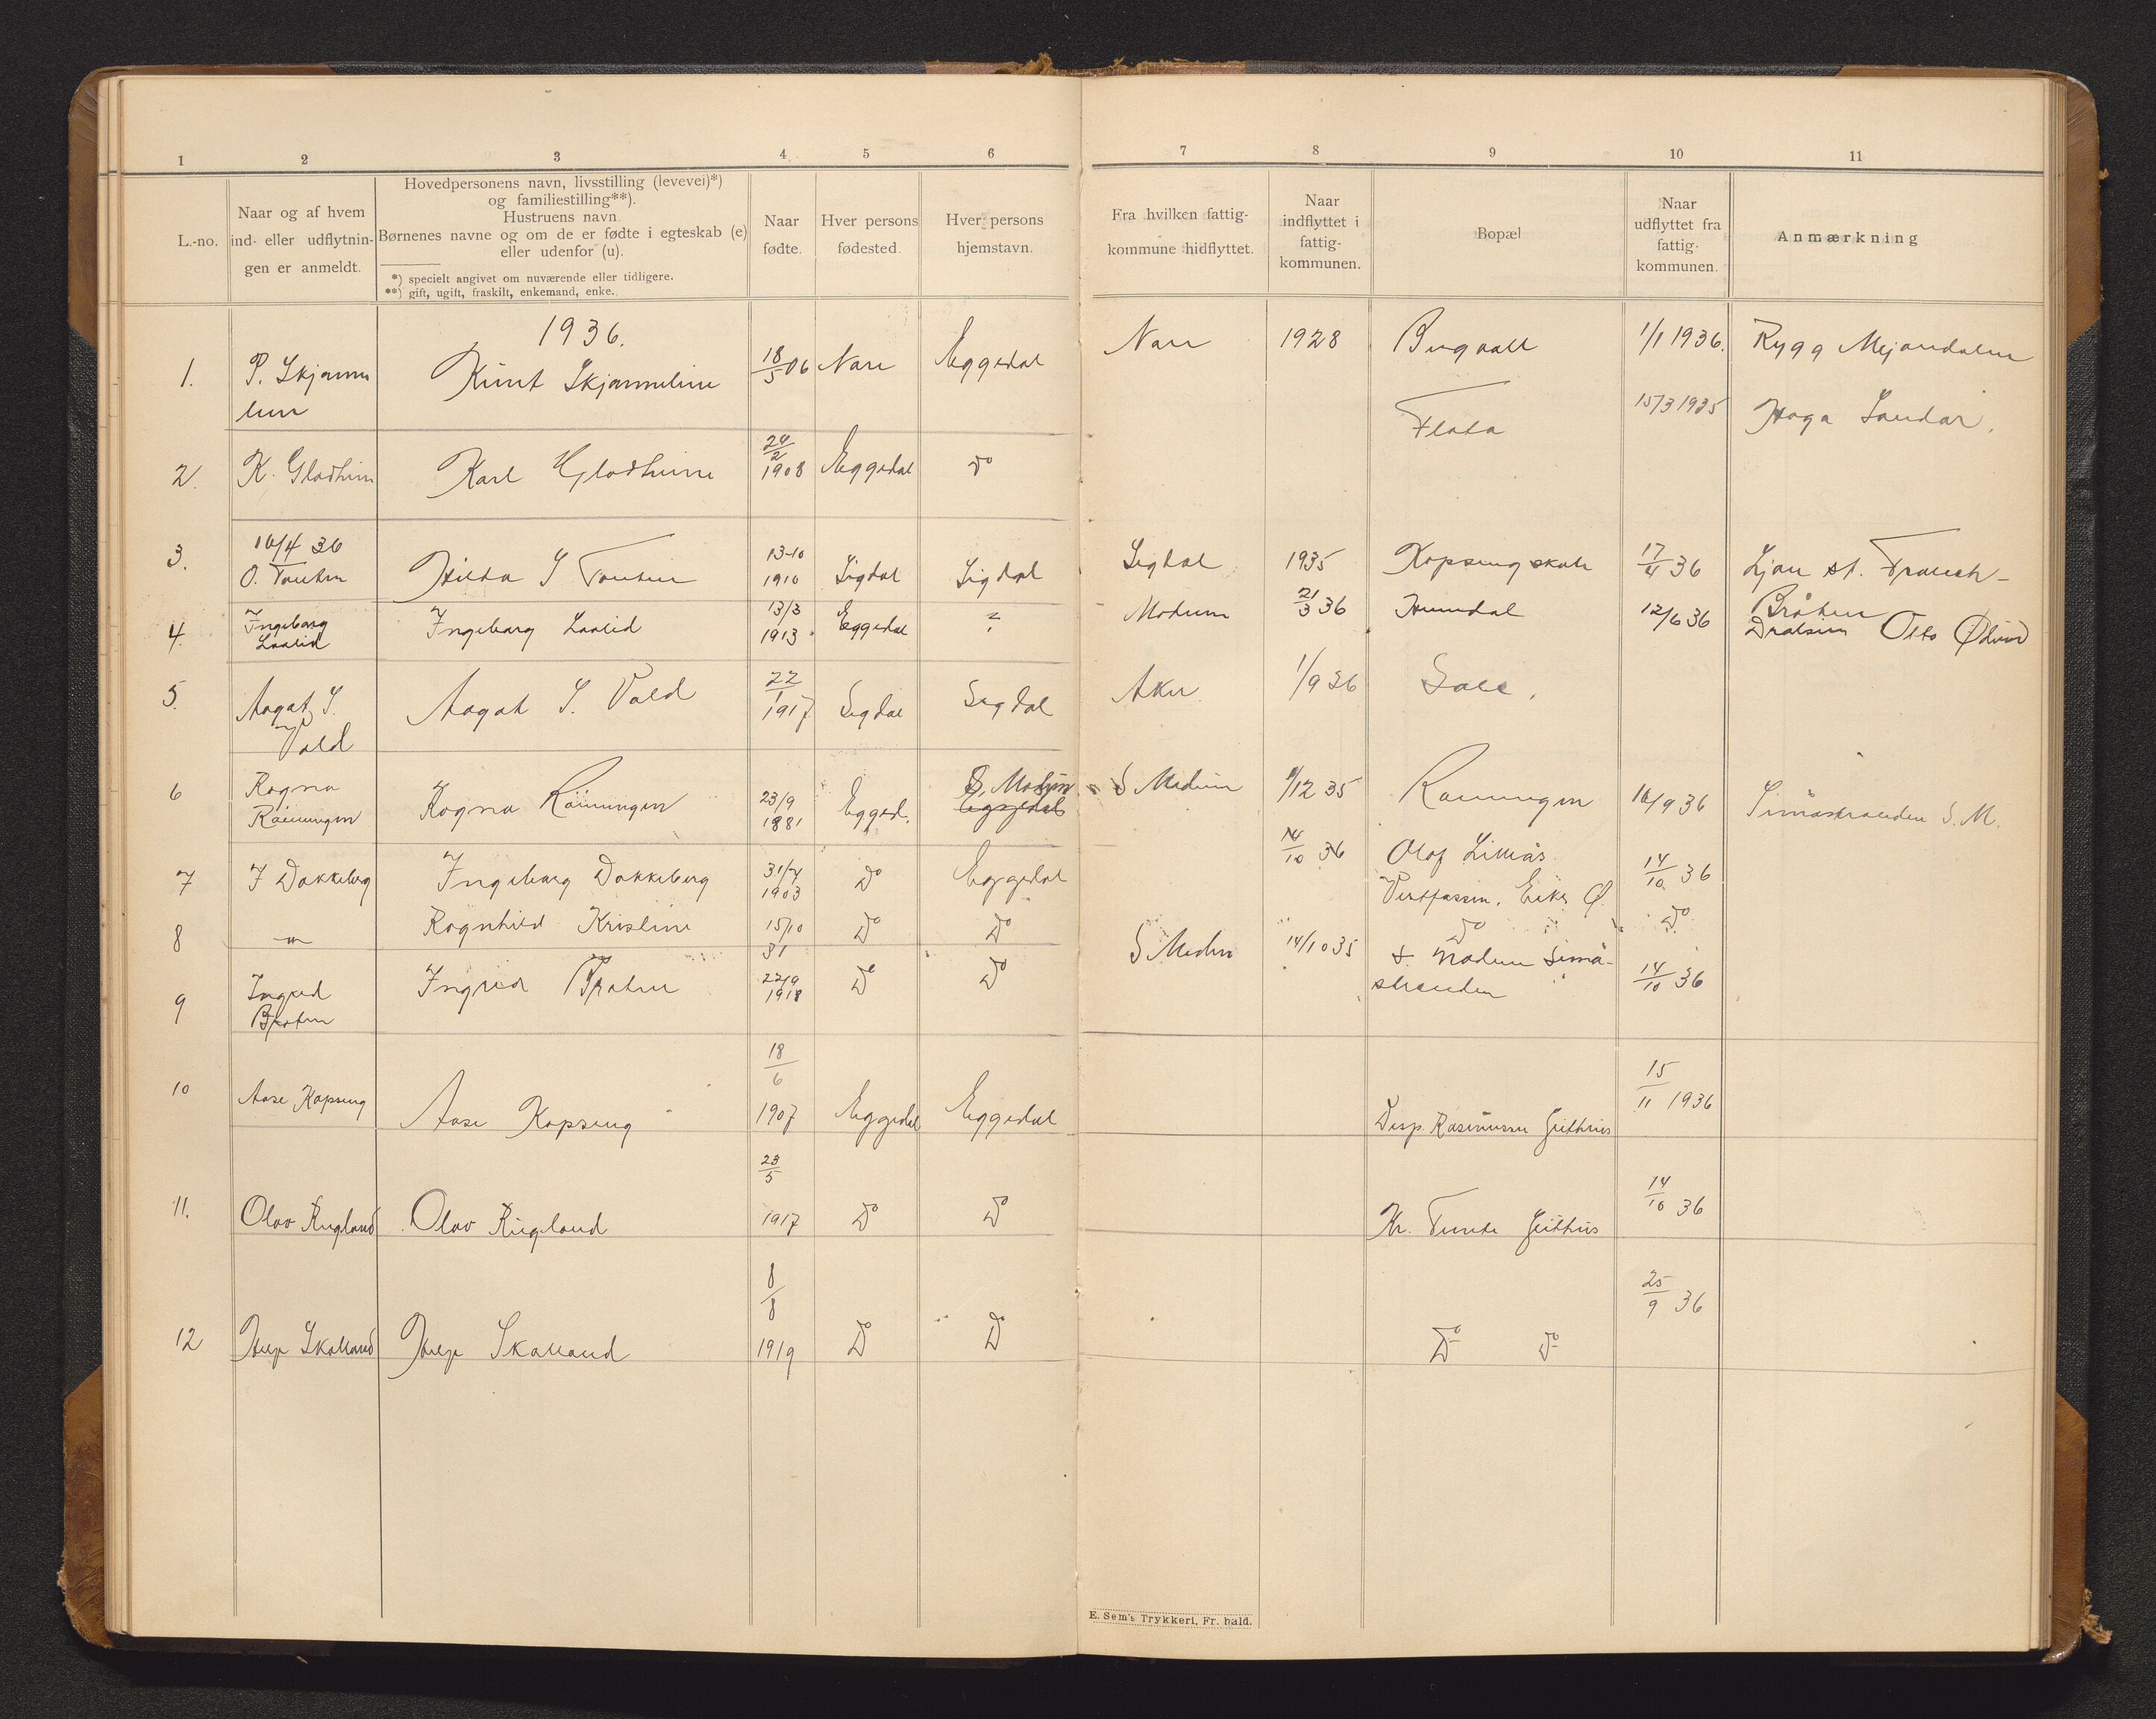 1 2 3 4 5 6 7 8 9 10 11
L.-no.
Naar og af hvem
ind- eller udflytnin-
gen er anmeldt.
Hovedpersonens navn, livsstilling (levevei)*)
og familiestilling**).
Hustruens navn
Børnenes navne og om de er fødte i egteskab (e)
eller udenfor (u).
*) specielt angivet om nuværende eller tidligere.
**) gift, ugift, fraskilt, enkemand, enke.
Naar
fødte.
Hver persons
fødested.
Hver persons
hjemstavn.
Fra hvilken fattig-
kommune hidflyttet.
Naar
indflyttet i
fattig-
kommunen.
Bopæl
Naar
udflyttet fra
fattig-
kommunen.
Anmærkning
1936.
1. P. Skjønne 18/5 06 Eggedal 1928 1/1 1936. Rygg Mjøndalen
Flata 15/3 1935 Haga Sandar.
2. K. Gladheim Karl Gladheim 24/2
1908 Eggedal do
3. 16/4 36
O. Tonton Hilda S Tonton 13-10
1910 Sigdal Sigdal Sigdal 1935 17/4 36 Ljan st.
4. Ingebarg
Laalid Ingebarg Laalid 13/3
1913 Eggedal Modum 21/3 36 Humdal 12/6 36 Bråten
Otto
5. Aagot S.
Vold Aagot S. Vold 22/1
1917 Sigdal Sigdal Aker 1/9 36
6 Ragna
Rönningen Ragna Rönningen 23/9
1881 Egged. S. Modum
Eggedal S Modum 1/12 35 Ronningen 16/9 36 Simåstranden S. M.
7 I Dokkeberg Ingebarg Dokkeberg 31/7
1903 Do Eggedal 14/10 36 Olaf Limås 14/10 36
Vestfossen, Eiker Ø.
8 " Ragnhild Kristine 15/10
31 Do Do Do Do
9 Ingrid
Braten Ingrid Braten 22/9
1918 Do Do S Modum 14/10 35 S. Modum Simå-
stranden 14/10 36
10 Aase Kopseng Aase Kopseng 18/6
1907 Eggedal Eggedal Disp. Rasmussen Geithus 15/11 1936
11. Olav Rugland Olav Rugland 23/5
1917 Do Do Kr. Tunte Geithus 14/10 36
12 Helge Skalland Helge Skalland 8/8
1919 Do Do Do Do 25/9 36
E. Sem's Trykkeri, Fr. hald.